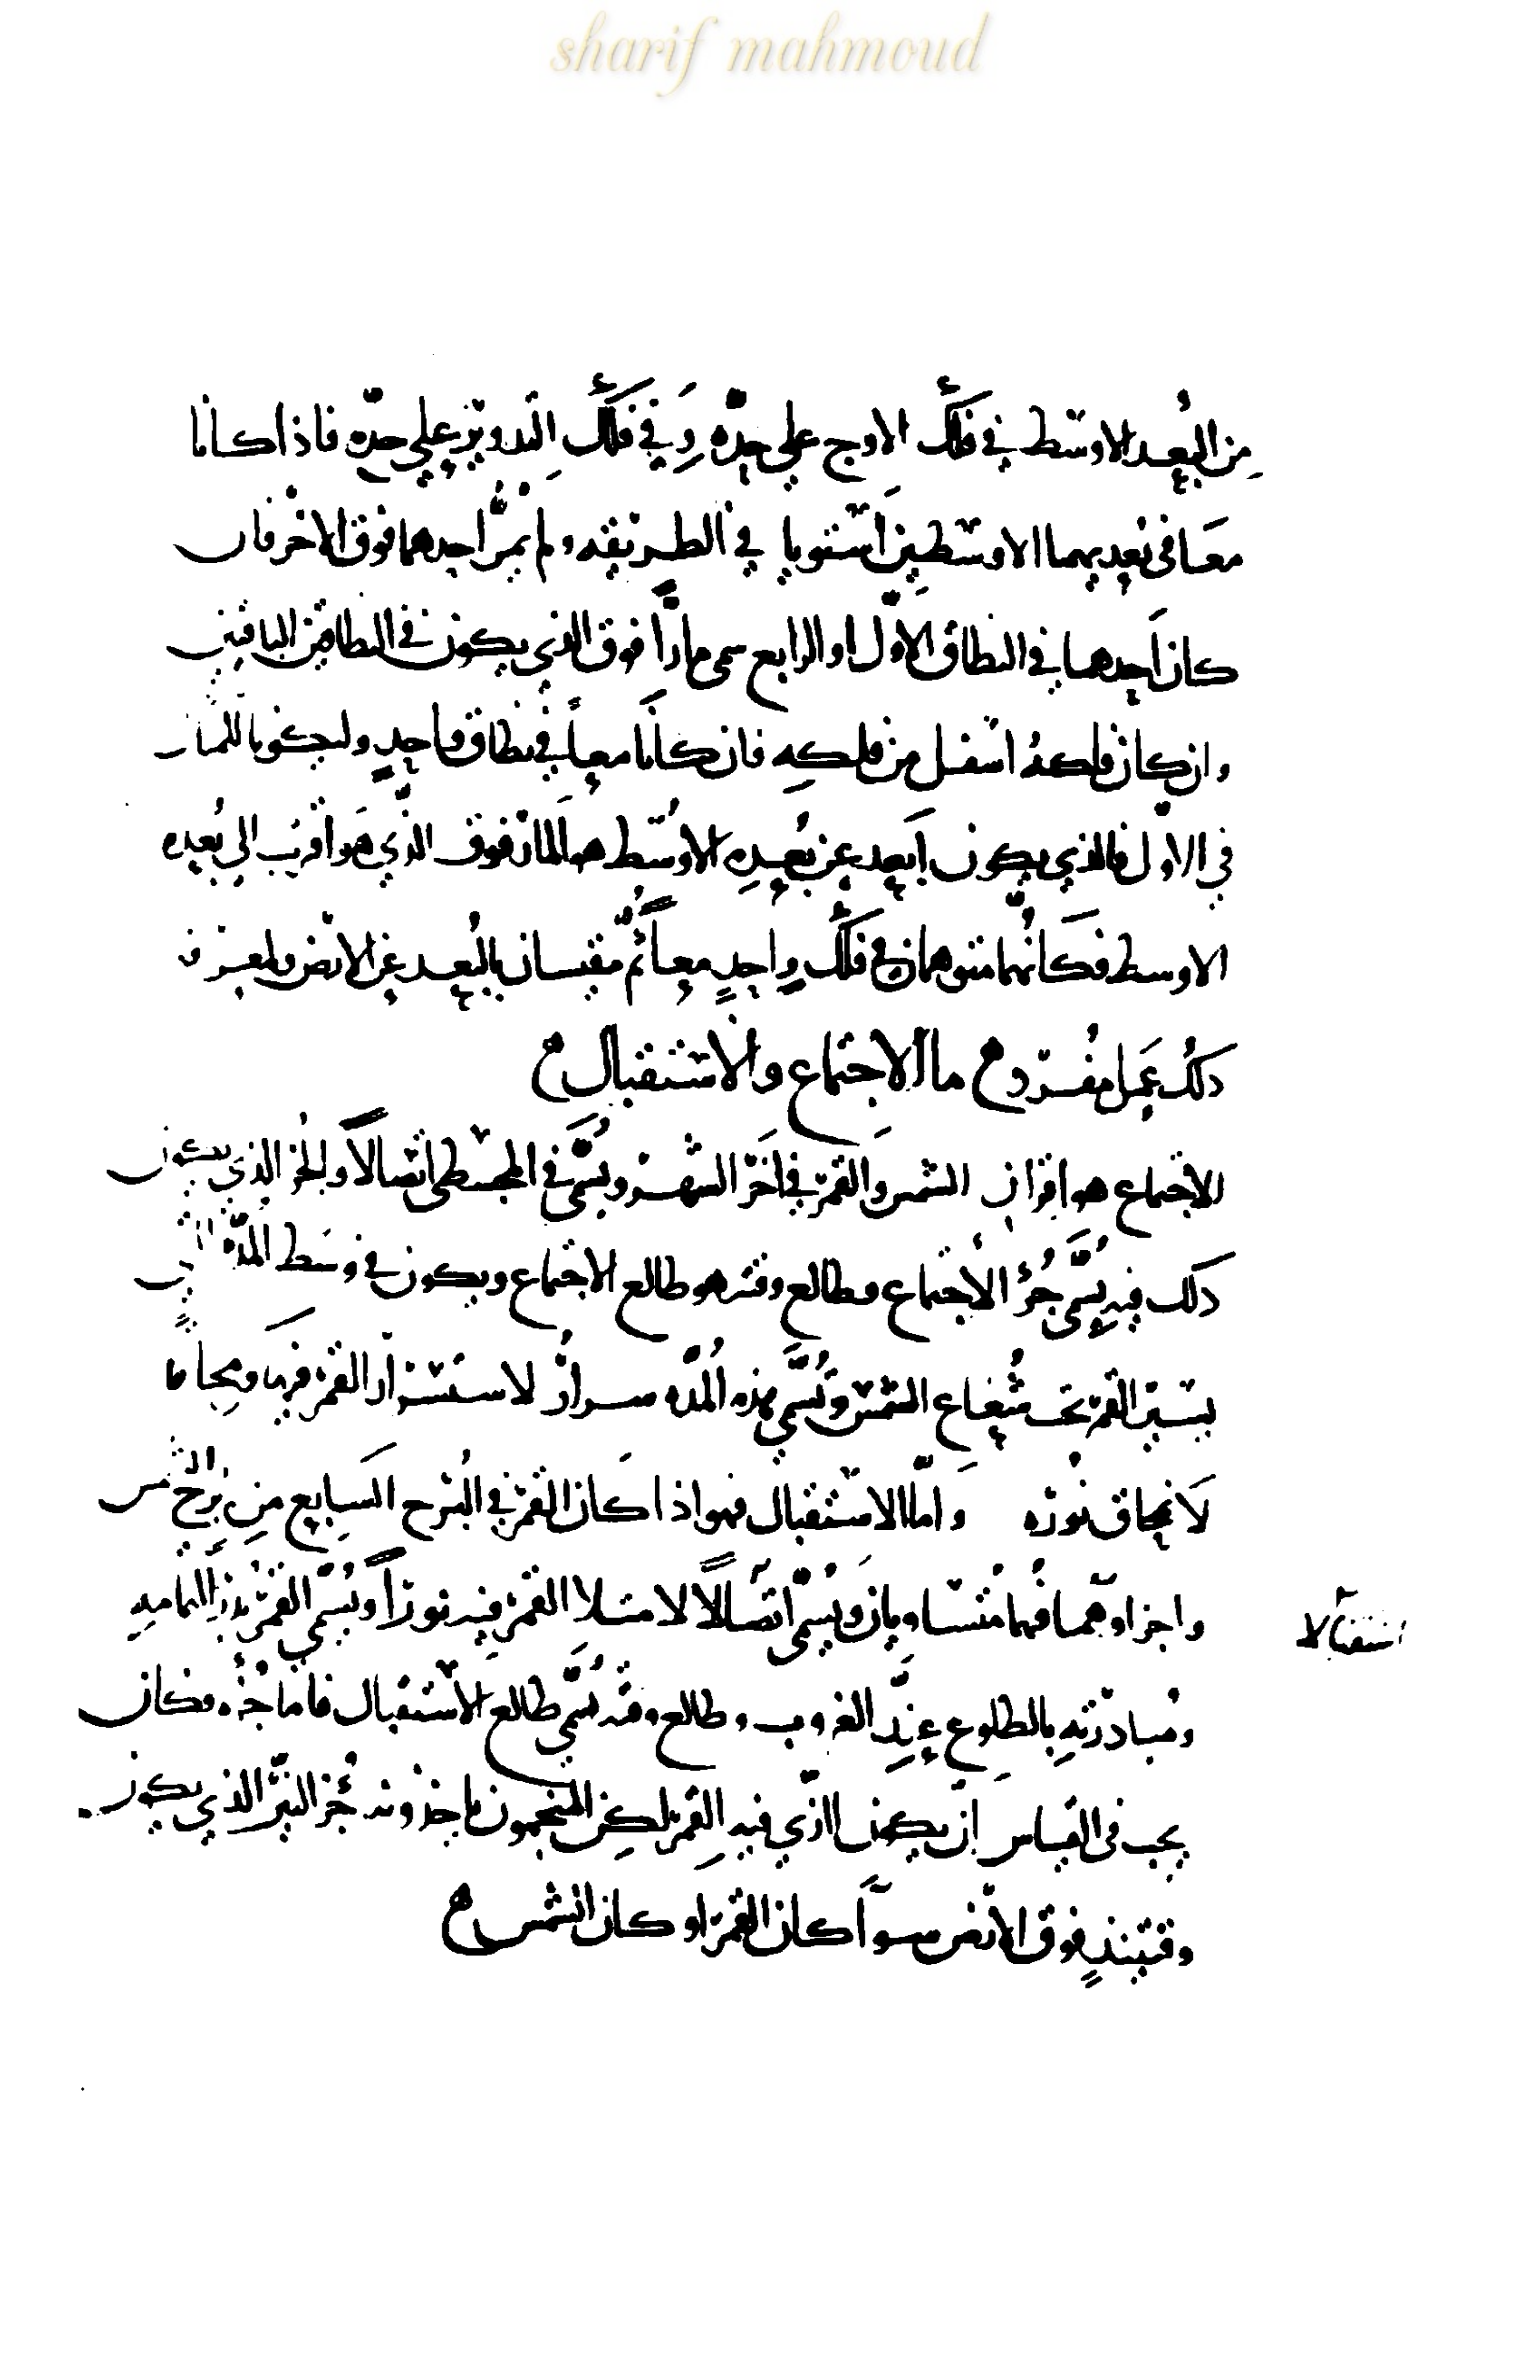 sharif mahmoud
من البُعد الاوسط في فلك الاوج على حِدَّه وَفي فلَك التدوير على حدّه فاذا كانا
معَا فى بعديهما الاوسطين استويا في الطريقه ولم يمرّ احدهما فوق الاخر فان
كان احدهما في النطاق الاوّل او الرابع سمى مارّاً فوق الذي يكون في النطاقين الباقيين
وان كان فلكهُ اسفل من فلكهِ فان كانا معاً في نطاق واحدٍ وليكونا للمثار
في الاول فالذي يكون اَبعد عن بُعدِه الاوسَط هو المار فوق الذي هو اقرب الى بُعده
الاوسط فكَانّهما متوهمان في فلَك واحدٍ معاً ثُمّ مقيسان بالبُعد عن الارض ولمعرفه
ذلك عَمل مُفرد ما الاجتماع والاستقبال
الاجتماع هو اقتران الشمس والقمر في اخَر الشهر ويُسمَّى في المجسطى اتّصالاً والجزء الذي يكون
ذلك فيه يُسمَّى جُزؤ الاجتماع وطالع وقته هو طالع الاجتماع ويكون في وسَط المُدّه التي
يسير القمر تحت شُعاع الشمس وتُسمَّى هذه المُدّه سراراً لاستسرار القمر فيها ومحاقا
لانمحاق نوره وَامّا الاستقبال فهو اذا كان القمر في البُرج السابع من بُرج الشمس
واجزاوهما فيهما مُتساويان ويُسمّى اتّصالاً لامتلا القمر فيه نوراً ويُسمّى القمر بدراً لتمامه
استقبالا
ومُبادرته بالطلوع عند الغروب وطالع وقته يُسمّى طالع الاستقبال فاما جُزؤه فكان
يجب فى القياس ان يكون الذي فيه القمر لكن المنجمون ياخذونه جُزؤ النيّر الذي يكون
وقتيذٍ فوق الارض سوآً كان القمر او كان الشمس